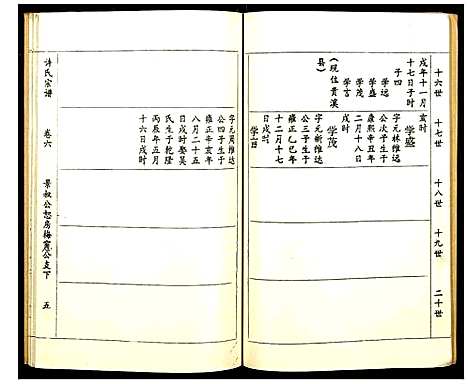 十六世
十七世
十八世
十九世
二十世
戌年十一月
十七日子时
子四
学远
学盛
学茂
学言
(现住贵溪
县)
亥时
学盛
字元林维远
公次子生于
康熙辛丑年
二月十八日
戌时
学茂
字元新维达
公三子生于
雍正乙巳年
十二月十七
日戌时
学言
字元周维达
公四子生于
雍正辛亥年
八月二十五
日戌时娶吴
氏生于乾隆
丙辰年五月
十六日戌时
许氏宗谱
卷六
景叔公恕房梅窗公支下
五